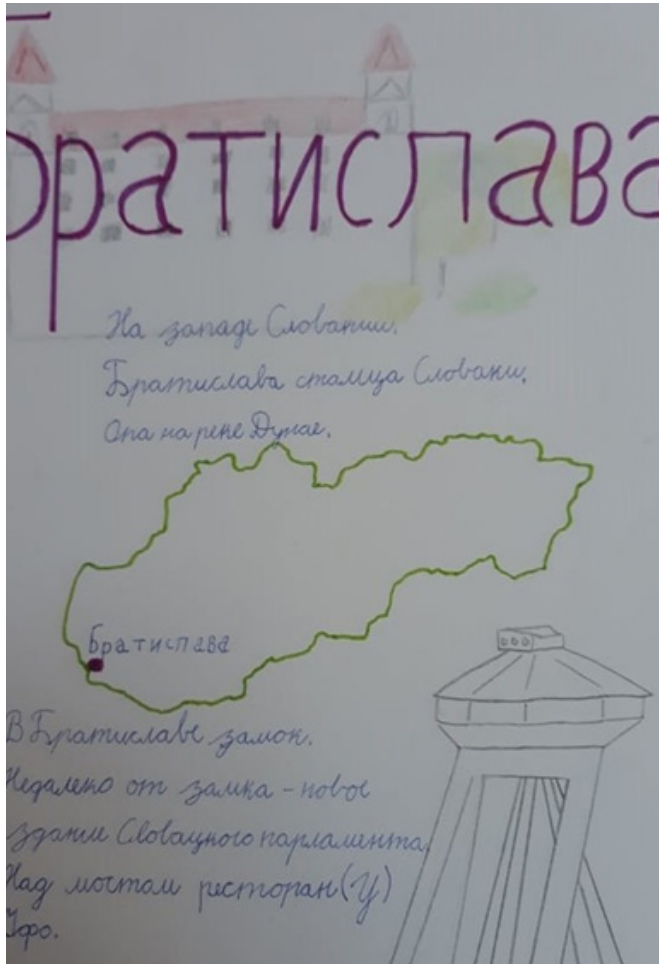 Братислава
На западе Словакии.
Братислава столица Словакии.
Она на реке Дунае.
Братислава
В Братиславе замок.
Недалеко от замка - новое
здание Словацкого парламента.
Над мостом ресторан (У)
Уфо.